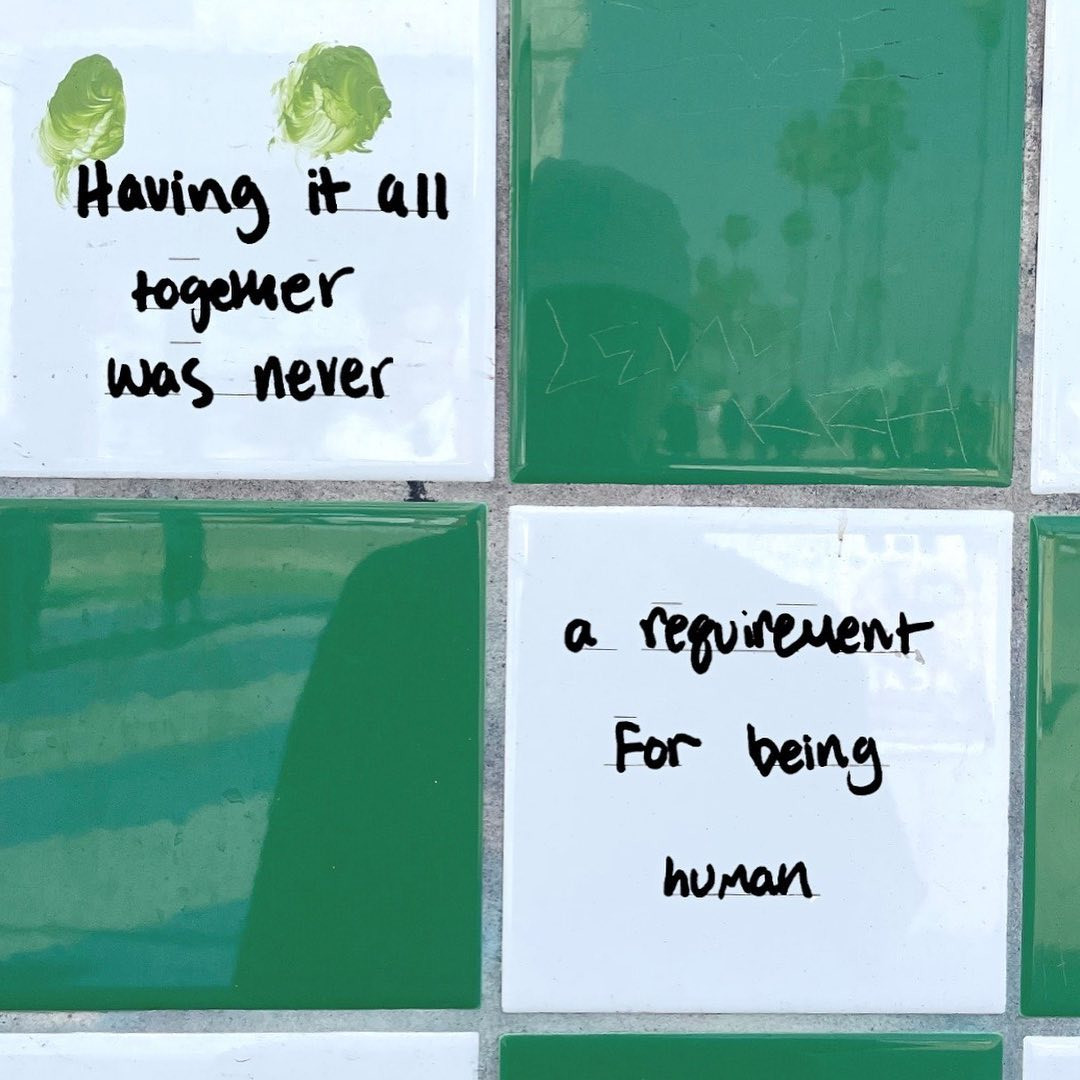 Having it all
together
was never
a requirement
For being
human